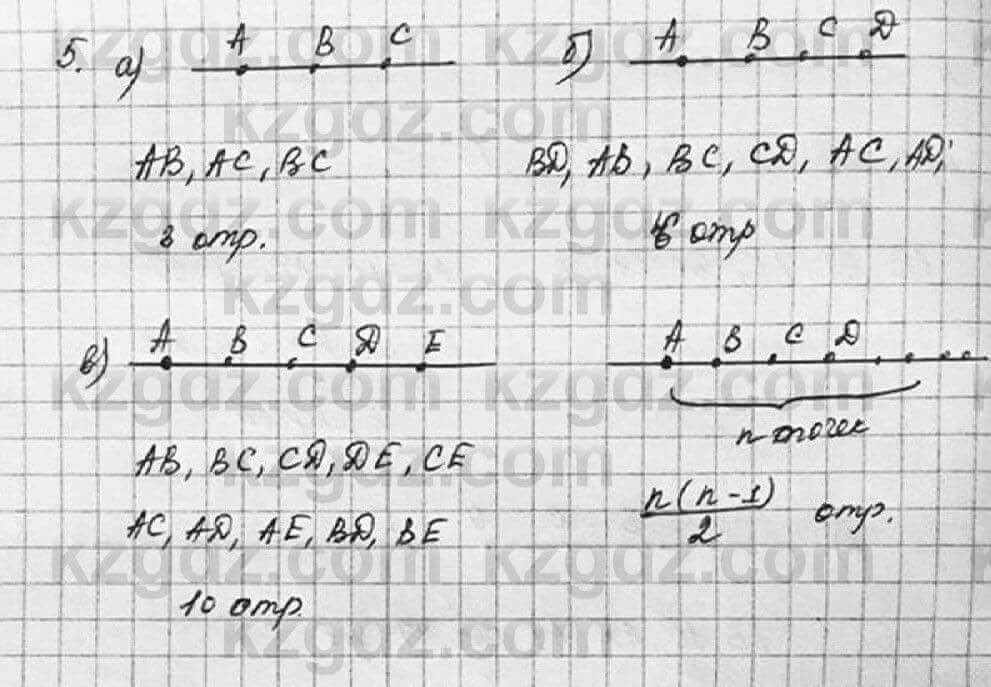 5. а) A B C
AB, AC, BC
3 отр.
б) A B C D
BD, AB, BC, CD, AC, AD,
6 отр
в) A B C D E
AB, BC, CD, DE, CE
AC, AD, AE, BD, BE
10 отр.
A B C D
n точек
n(n-1)/2 отр.
kzgdz.com